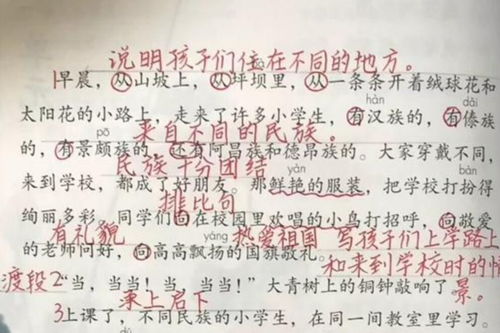 说明孩子们住在不同的地方。
1早晨，从山坡上，从坪坝里，从一条条开着绒球花和
hàn dǎi
太阳花的小路上，走来了许多小学生，有汉族的，有傣族
pō
来自不同的民族。
的，有景颇族的，还有阿昌族和德昂族的。大家穿戴不同，
民族十分团结
yàn bàn
来到学校，都成了好朋友。那鲜艳的服装，把学校打扮得
排比句
绚丽多彩。同学们向在校园里欢唱的小鸟打招呼，向敬爱
有礼貌 yáng 热爱祖国 写孩子们上学路上
的老师问好，向高高飘扬的国旗敬礼。
和来到学校时的情
渡段2“当，当当！当，当当！”大青树上的铜钟敲响了
景。
承上启下
3上课了，不同民族的小学生，在同一间教室里学习。